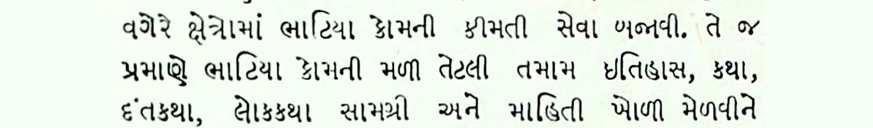 વગેરે ક્ષેત્રોમાં ભાટિયા કોમની કીમતી સેવા બજાવી. તે જ
પ્રમાણે ભાટિયા કોમની મળી તેટલી તમામ ઇતિહાસ, કથા,
દંતકથા, લોકકથા સામગ્રી અને માહિતી ખોળી મેળવીને